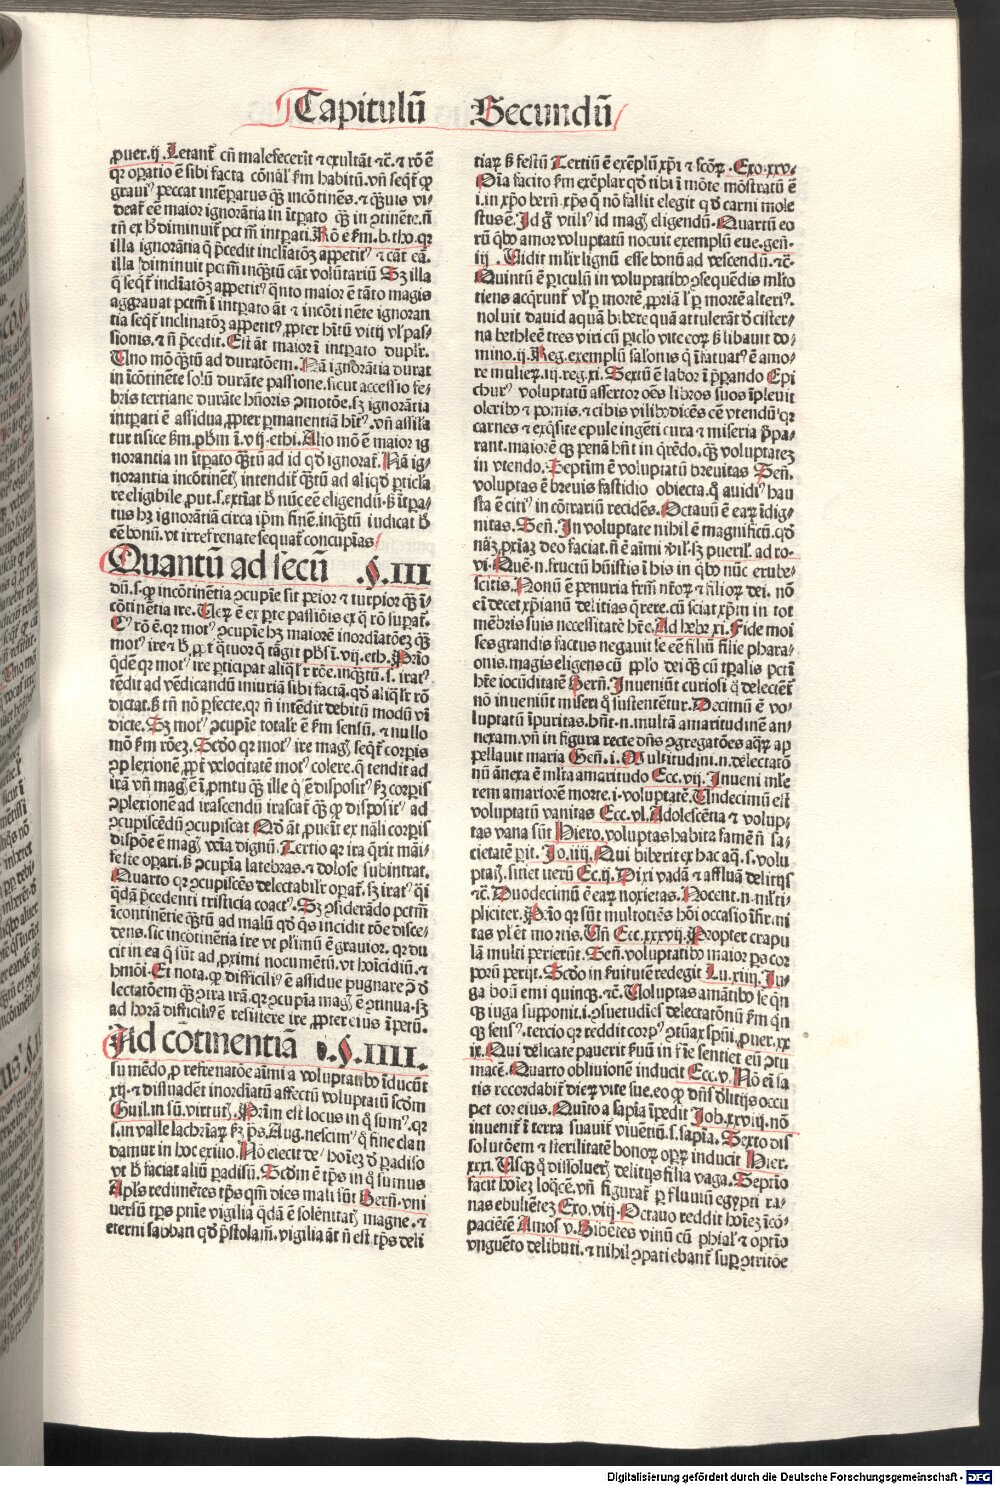 Capitulū Secundū
ꝓuer.ij. Letant᷑ cū malefecerīt ⁊ exultāt ⁊c̄. ⁊ rō ē
qꝛ oꝑatio ē sibi facta cōnāl᷑ ẜm habitū. vn̄ seqt᷑ ꝙ
grauiꝰ peccat intēꝑatus qꝫ incōtinēs. ⁊ qꝫuis vi-
deat᷑ eē maior ignorātia in ītꝑato qꝫ in ꝯtinēte. n̄
tn̄ ex ħ diminuit᷑ pct̄m intꝑati. Rō ē ẜm.b.tho.qꝛ
illa ignorātia q̄ p̄cedit inclīatōꝫ appetitꝰ ⁊ cāt cā.
illa diminuit pctm̄ inqꝫtū cāt volūtariū Sꝫ illa
q̄ seqt᷑ inclīatōꝫ appetitꝰ q̄nto maior ē tāto magis
aggrauat pctm̄ ī intꝑato āt ⁊ incōtinēte ignoran
tia seqt᷑ inclinatōꝫ appetitꝰ, ꝓpter hītū vitij vl᷑ pas-
sionis. ⁊ n̄ p̄cedit. Est āt maior ī intꝑato duplr̄.
Uno mō qꝫtū ad duratōem. Nā ignorātia durat
in īcōtinēte solū durāte passione. sicut accessio fe-
bris tertiane durāte hūoris ꝯmotōe. sꝫ ignorātia
intꝑati ē assidua, ꝓpter ꝑmanentiā hītꝰ. vn̄ assila
tur tisice ẜm.phm̄ ī.vij.ethi. Alio mō ē maior ig
norantia in ītꝑato qꝫtū ad id qd̄ ignorat᷑. Nā ig-
norantia incōtinētꝭ intendit᷑ qꝫtū ad aliqd̄ ꝑticla
re eligibile, put.s.extīat ħ nūc eē eligendū. ẜ ītꝑa-
tus hꝫ ignorātiā circa ip̄m finē. inqꝫtū iudicat ħ
eē bonū. vt irrefrenate sequat᷑ concupīas
Quantū ad secū .§.III
dū.s. ꝙ incōtinētia ꝯcupīe sit peior ⁊ turpior qꝫ ī-
cōtinētia ire. Uerū ē ex ꝑte passiōis ex q̄ rō suꝑat᷑.
Cꝰ rō ē. qꝛ motꝰ ꝯcupīe hꝫ maiorē inordīatōeꝫ qꝫ
motꝰ ire ⁊ ħ, ꝓpt̄ q̄tuor q̄ tāgit phs̄ ī.vij.eth. Prīo
q̄dē qꝛ motꝰ ire ꝑticipat aliql᷑r rōe. inqꝫtū.s. iratꝰ
tēdit ad vēdicandū iniuriā sibi factā. qd̄ aliql᷑r rō
dictat. ẜ tn̄ nō ꝑfecte. qꝛ n̄ intēdit debitū modū vī
dicte. Sꝫ motꝰ ꝯcupīe totalr̄ ē ẜm sensū. ⁊ nullo
mō ẜm rōeꝫ. Scd̄o qꝛ motꝰ ire magꝭ seqt᷑ corpis
ꝯplexionē, ꝓpt̄ velocitatē motꝰ colere. q̄ tendit ad
irā vn̄ magꝭ ē ī, pmtu qꝫ ille q̄ ē dispositꝰ ẜꝫ corpis
ꝯplexionē ad irascendū irascat᷑ qꝫ ꝙ dispositꝰ ad
ꝯcupiscēdū ꝯcupiscat Qd̄ āt, pueīt ex nāli corpis
dispōe ē magꝭ venīa dignū. Tertio qꝛ ira q̄rit māi-
feste oꝑari. ẜ ꝯcupīa latebras. ⁊ dolose subintrat.
Quarto qꝛ ꝯcupiscēs delectabilr̄ oꝑat᷑. sꝫ iratꝰ q̄i
q̄dā p̄cedenti tristicia coactꝰ. Sꝫ ꝯsiderādo pctm̄
īcontinētie qꝫtū ad malū qd̄ q̄s incidit rōe disce-
dens. sic incōtinētia ire vt plīmū ē grauior. qꝛ du
cit in ea q̄ sūt ad, ꝓximi nocumētū. vt hoīcidiū. ⁊
hmōi. Et nota. ꝙ difficiliꝰ ē assidue pugnare ꝯ d̄
lectatōem qꝫ ꝯtra irā. qꝛ ꝯcupīa magꝭ ē ꝯtinua. sꝫ
ad horā difficiliꝰ ē resistere ire, ꝓpter eius īpetū.
Ad cōtinentiā .§.IIII.
sumēdo, ꝓ refrenatōe aīmi a voluptatibꝰ īducūt
xij. ⁊ dissuadēt inordīatū affectū voluptatū scd̄m
Guil.in sū.virtutꝭ. Prim̄ est locus in q̄ sumꝰ. qꝛ
s.in valle lachrīaꝝ ẜꝫ ps̄. Aug. nescimꝰ q̄ fine clau
damur in hoc exiuo. Nō eiecit deꝰ hoīeꝫ d̄ padiso
vt ħ faciat aliū padisū. Scd̄m ē tp̄s in q̄ sumus
Apls̄ redimētes tp̄s qm̄ dies mali sūt Bern̄. vni
uersū tp̄s pnīe vigilia q̄dā ē solēnitatꝭ magne. ⁊
eterni sabbati qd̄ p̄stolam̄. vigilia āt n̄ est tp̄s deli
tiaꝝ ẜ festū Tertiū ē exēplū xp̄i ⁊ scōꝝ. Exo.xxv.
Oīa facito ẜm exēplar qd̄ tibi ī mōte mōstratū ē
i.in xp̄o bern̄. xp̄s q̄ nō fallit elegit qd̄ carni mole
stus ē. Id g̊ vtiliꝰ id magꝭ eligendū. Quartū eo
rū q̄bꝰ amor voluptatū nocuit exemplū eue. gen̄.
iij. Uidit mlīer lignū esse bonū ad vescendū. ⁊c̄.
Quintū ē ꝑiculū in voluptatibꝰ ꝯsequēdis ml̄to
tiens acqrunt᷑ vl᷑ ꝑ mortē, ꝓpriā l᷑ ꝑ mortē alteriꝰ.
noluit dauid aquā bibere quā attulerāt d̄ cister-
na bethleē tres viri cū ꝑiclo vite eoꝝ ẜ libauit do-
mino.ij. Reg. exemplū salomōis q̄ īfatuatꝰ ē amo-
re mulieꝝ.iij.reg.xi. Sextū ē labor ī p̄parando Epi
churꝰ voluptatū assertor oēs libros suos īpleuit
oleribꝰ ⁊ pomis. ⁊ cibis vilibꝰ dicēs eē vtendū qꝛ
carnes ⁊ exq̄site epule ingēti cura ⁊ miseria p̄pa-
rant. maiorē qꝫ penā hn̄t in q̄rēdo. qꝫ voluptateꝫ
in vtendo. Septim̄ ē voluptatū breuitas Sen̄.
voluptas ē breuis fastidio obiecta. q̄ auidiꝰ hau
sta ē citiꝰ in cōtrariū recidēs. Octauū ē eaꝝ īdig-
nitas. Sen̄. In voluptate nihil ē magnificū. qd̄
nāꝫ, ꝓxīaꝫ deo faciat. n̄ ē aīmi vil̄. sꝫ pueril̄. ad ro-
vi. Quē.n.fructū hūistis ī his in q̄bꝰ nūc erube-
scitis. Nonū ē penuria frm̄ nr̄oꝝ ⁊ filioꝝ dei. nō
eī decet xp̄ianū delitias q̄rere. cū sciat xp̄m in tot
mēbris suis necessitatē hr̄e. Ad hebr̄ xi. Fide moi
ses grandis factus negauit se eē filiū filie phara-
onis. magis eligens cū pp̄lo dei qꝫ cū tpalis pcti
hr̄e iocūditatē Bern̄. Inueniūt curiosi q̄ delectēt᷑
nō inueniūt miseri q̄ sustentētur. Decimū ē vo-
luptatū īpuritas. hn̄t.n.multā amaritudinē an-
nexam. vn̄ in figura recte dn̄s ꝯgregatōes aqꝝ ap
pellauit maria Gen̄.i. Multitudini.n.delectatō
nū ānexa ē ml̄ta amaritudo Ecc.vij. Inueni mlīe
rem amariorē morte.i.voluptatē. Undecimū est
voluptatū vanitas Ecc.vl. Adolescētia ⁊ volup-
tas vana sūt Hiero. voluptas habita famē n̄ sa-
cietatē pit. Jo.iiij. Qui biberit ex hac aq̄.s.volu
ptatꝭ. sitiet iterū Ec.ij. Dixi vadā ⁊ affluā delitijs
⁊c̄. Duodecimū ē eaꝝ noxietas. Nocent.n.ml̄ti-
pliciter. Prīo qꝛ sūt multotiēs hōi occasio īfirmi
tas vl᷑ ēt mortis. Un̄ Ecc.xxxvij. Propter crapu
lā multi perierūt. Sen̄. voluptatibꝰ maior ps cor
poꝝ perijt. Scd̄o in ẜuitutē redegit Lu.xiiij. Iu-
ga boū emi quinqꝫ. ⁊c̄. Uoluptas amātibꝰ se q̄n
qꝫ iuga supponit.i.ꝯsuetudīes delectatōnū ẜm q̄n
qꝫ sensꝰ. tercio qꝛ reddit corpꝰ ꝯtūax spūi, ꝓuer.xx
ix. Qui delicate pauerit ẜuū in fīe sentiet eū ꝯtu
macē. Quarto obliuionē inducit Ecc.v. Nō eī sa
tis recordabit᷑ dieꝝ vite sue. eo ꝙ dn̄s d̄litijs occu
pet cor eius. Quīto a sapīa īpedit Job.xxviij. nō
inuenit᷑ ī terra suauit᷑ viuētiū.s.sapīa. Sexto dis
solutōem ⁊ sterilitatē bonoꝝ opeꝝ inducit Hier.
xxxi. Usqꝫ q̄ dissolueꝭ delitijs filia vaga. Septīo
facit hoīeꝫ loq̄cē. vn̄ figurat᷑ ꝑ fluuiū egypti ra-
nas ebulientēꝫ Exo.viij. Octauo reddit hoīeꝫ īcō-
paciētē Amos v. Bibētes vinū cū phial̄ ⁊ optīo
vnguēto delibuti. ⁊ nihil ꝯpatiebant᷑ suꝑ ꝯtritōe
Digitalisierung gefördert durch die Deutsche Forschungsgemeinschaft - DFG